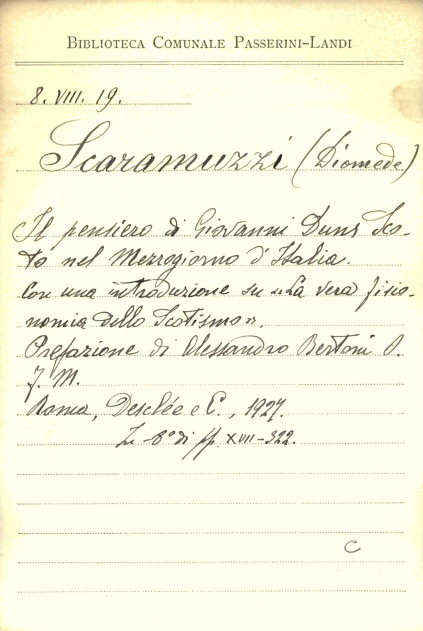 BIBLIOTECA COMUNALE PASSERINI-LANDI
8. VIII. 19.
Scaramuzzi (Diomede)
Il pensiero di Giovanni Duns Sco-
to nel Mezzogiorno d'Italia.
Con una introduzione su "La vera fisio-
nomia dello Scotismo".
Prefazione di Alessandro Bertoni O.
F. M.
Roma, Desclée e C., 1927.
In-8° di pp. XVII-322.
C